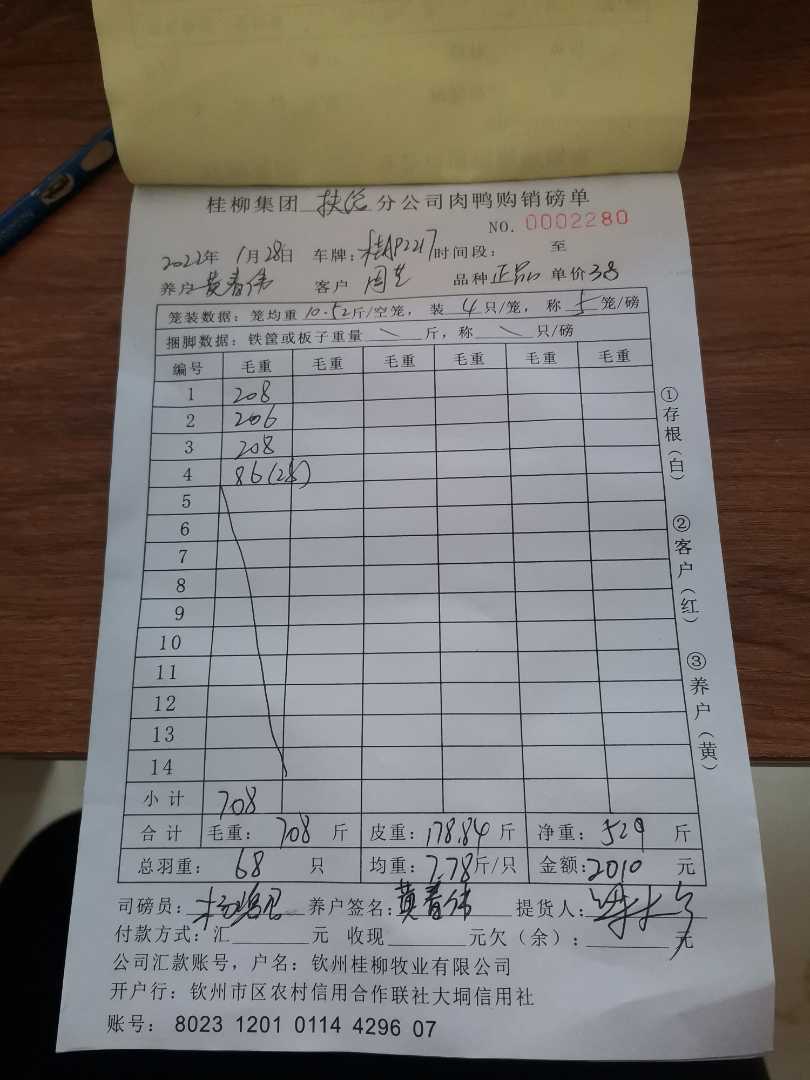 桂柳集团 扶绥 分公司肉鸭购销磅单
NO. 0002280
2022年 1月28日 车牌: 桂AP2217 时间段: 至
养户 黄春伟 客户 周 品种 正品 单价 38
笼装数据: 笼均重 10.52 斤/空笼, 装 4 只/笼, 称 5 笼/磅
捆脚数据: 铁筐或板子重量 \ 斤, 称 \ 只/磅
编号 毛重 毛重 毛重 毛重 毛重 毛重
1 208
2 206
3 208
4 86(2笼)
5
6
7
8
9
10
11
12
13
14
小计 708
合计 毛重: 708 斤 皮重: 178.84 斤 净重: 529 斤
总羽重: 68 只 均重: 7.78 斤/只 金额: 2010 元
司磅员: 养户签名: 黄春伟 提货人:
付款方式: 汇 元 收现 元欠(余): 元
公司汇款账号, 户名: 钦州桂柳牧业有限公司
开户行: 钦州市区农村信用合作联社大垌信用社
账号: 8023 1201 0114 4296 07
①存根(白)
②客户(红)
③养户(黄)